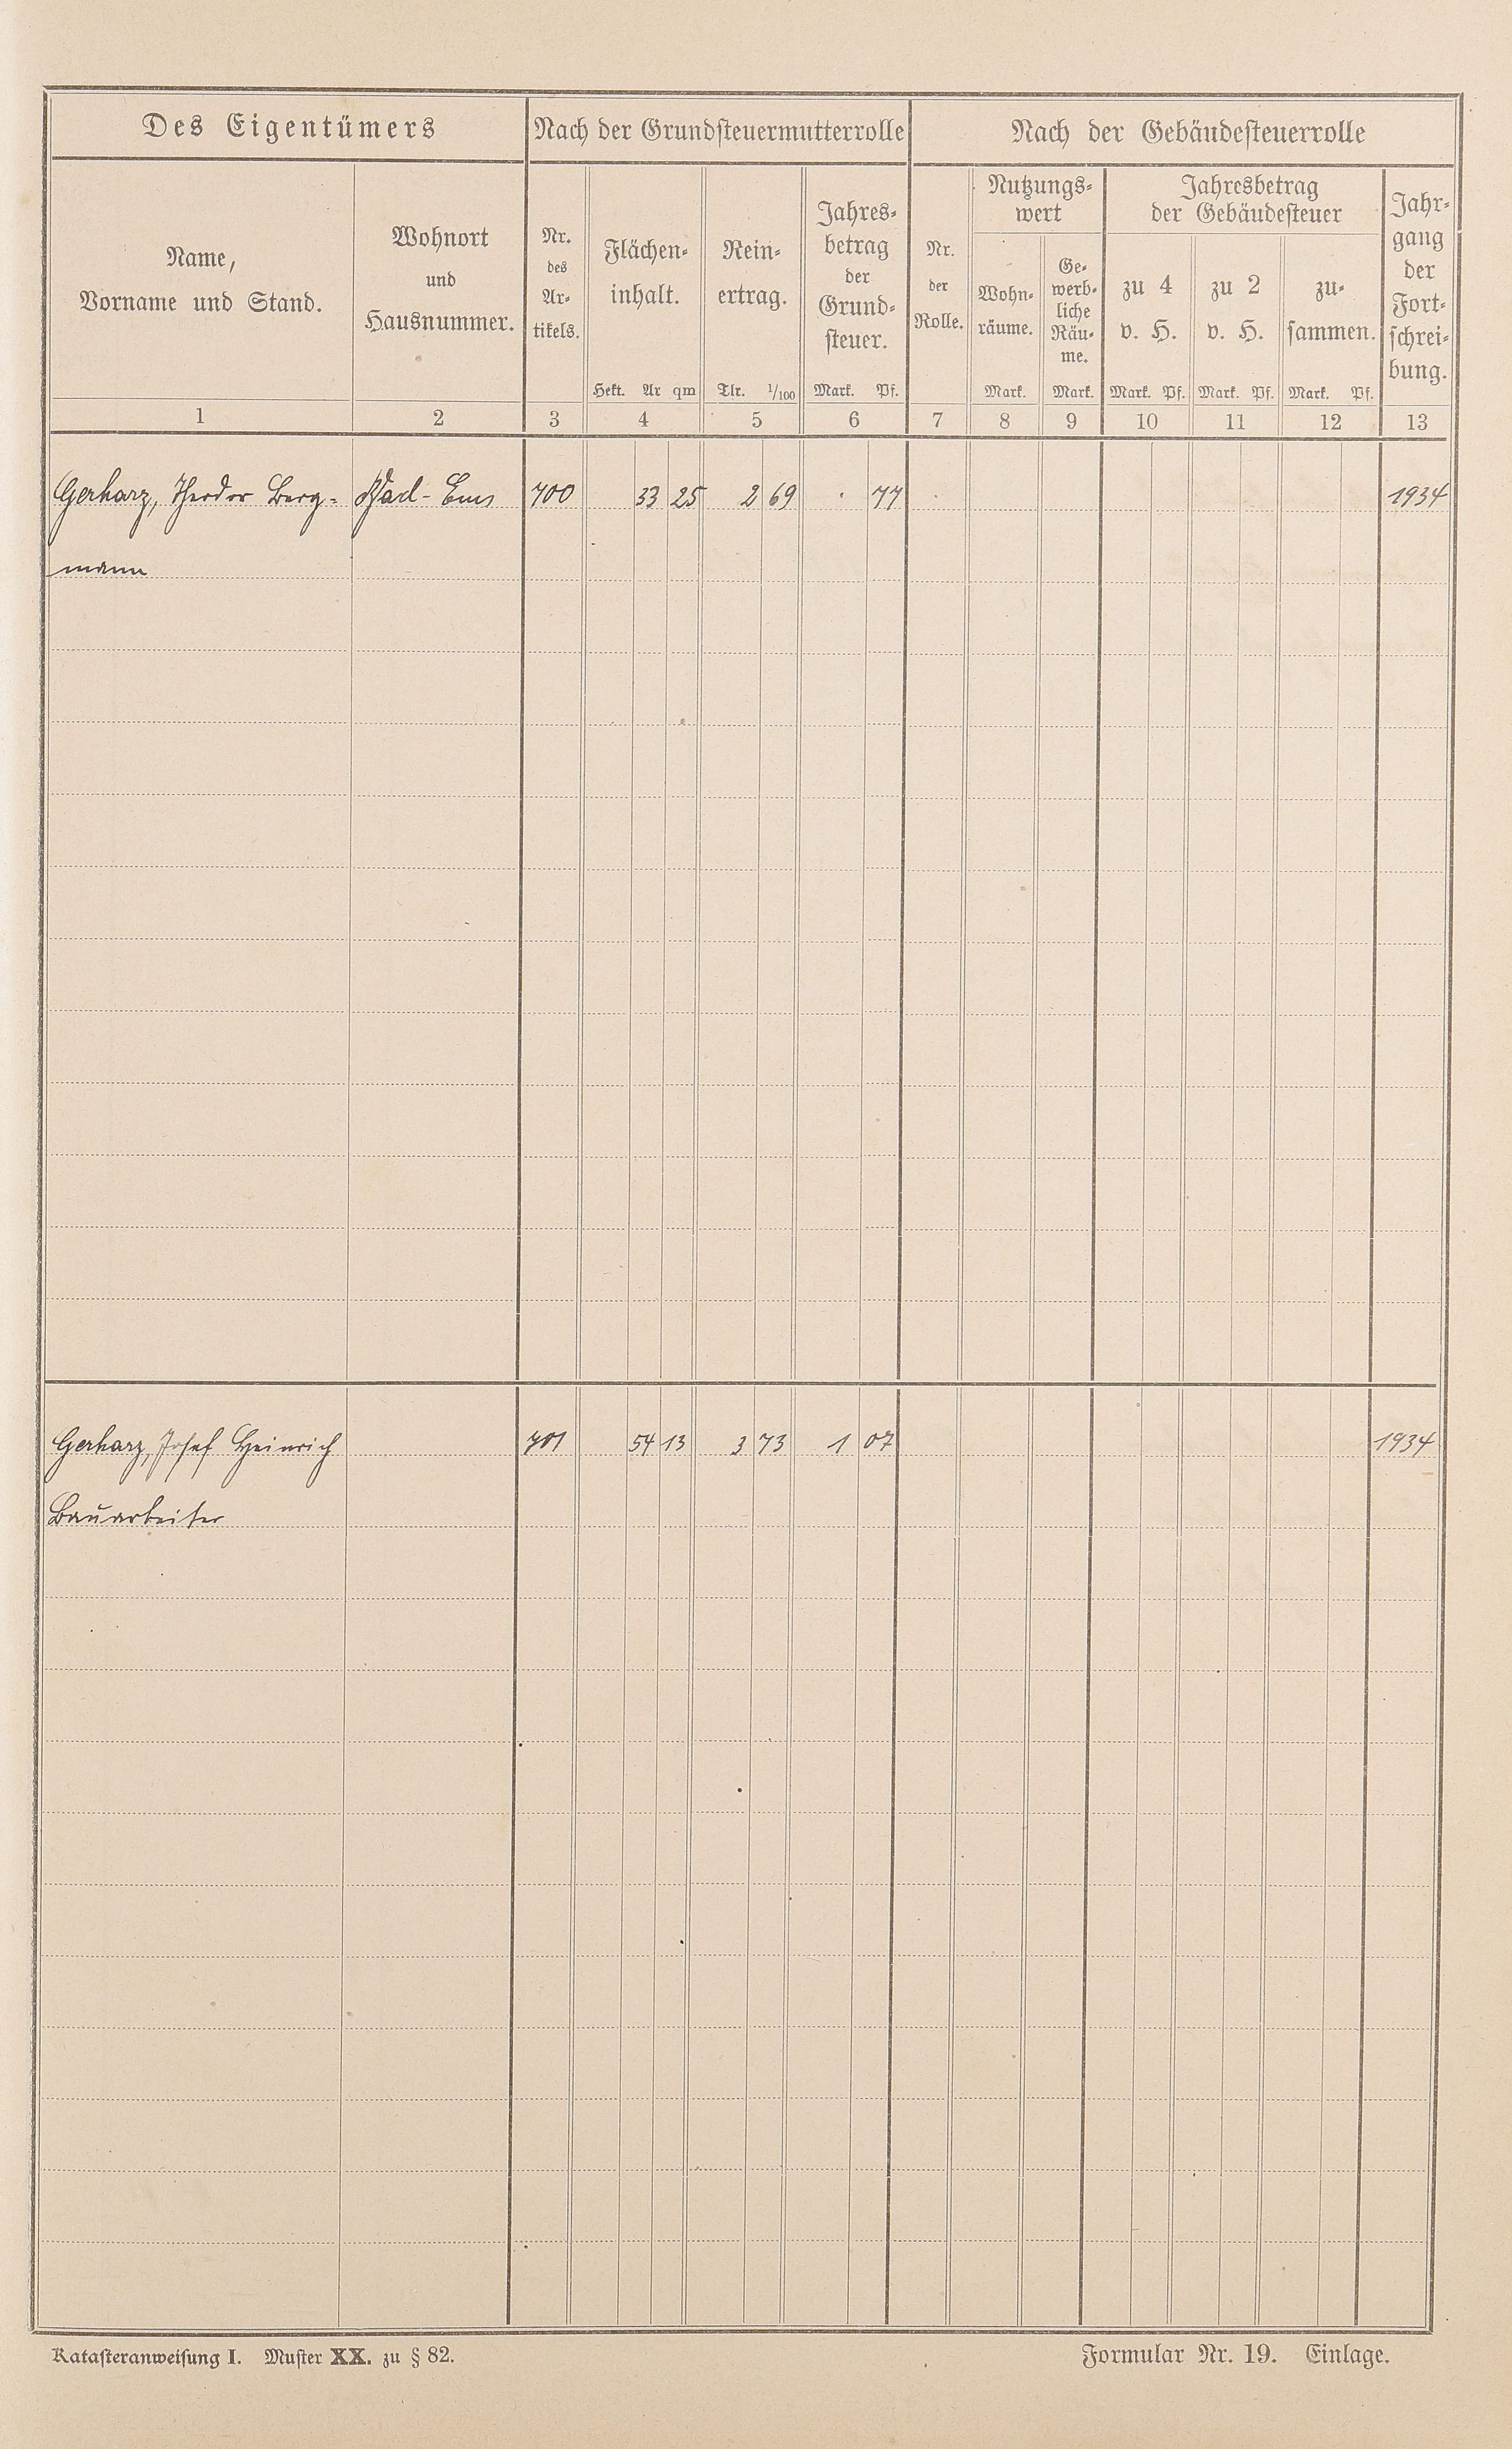 Des Eigentümers Nach der Grundsteuermutterrolle Nach der Gebäudesteuerrolle
Name,
Vorname und Stand.
Wohnort
und
Hausnummer.
Nr.
des
Ar-
tikels.
Flächen-
inhalt.
Hekt. Ar qm
Rein-
ertrag.
Tlr. 1/100
Jahres-
betrag
der
Grund-
steuer.
Mark. Pf.
Nr.
der
Rolle.
Nutzungs-
wert
Wohn-
räume.
Mark.
Ge-
werb-
liche
Räu-
me.
Mark.
Jahresbetrag
der Gebäudesteuer
zu 4
v. H.
Mark. Pf.
zu 2
v. H.
Mark. Pf.
zu-
sammen.
Mark. Pf.
Jahr-
gang
der
Fort-
schrei-
bung.
1 2 3 4 5 6 7 8 9 10 11 12 13
Gerharz, Theodor Berg- Bad-Ems 700 33 25 2 69 . 77 1934
mann
Gerharz, Josef Heinrich 701 54 13 3 73 1 07 1934
Bauarbeiter
Katasteranweisung I. Muster XX. zu § 82. Formular Nr. 19. Einlage.